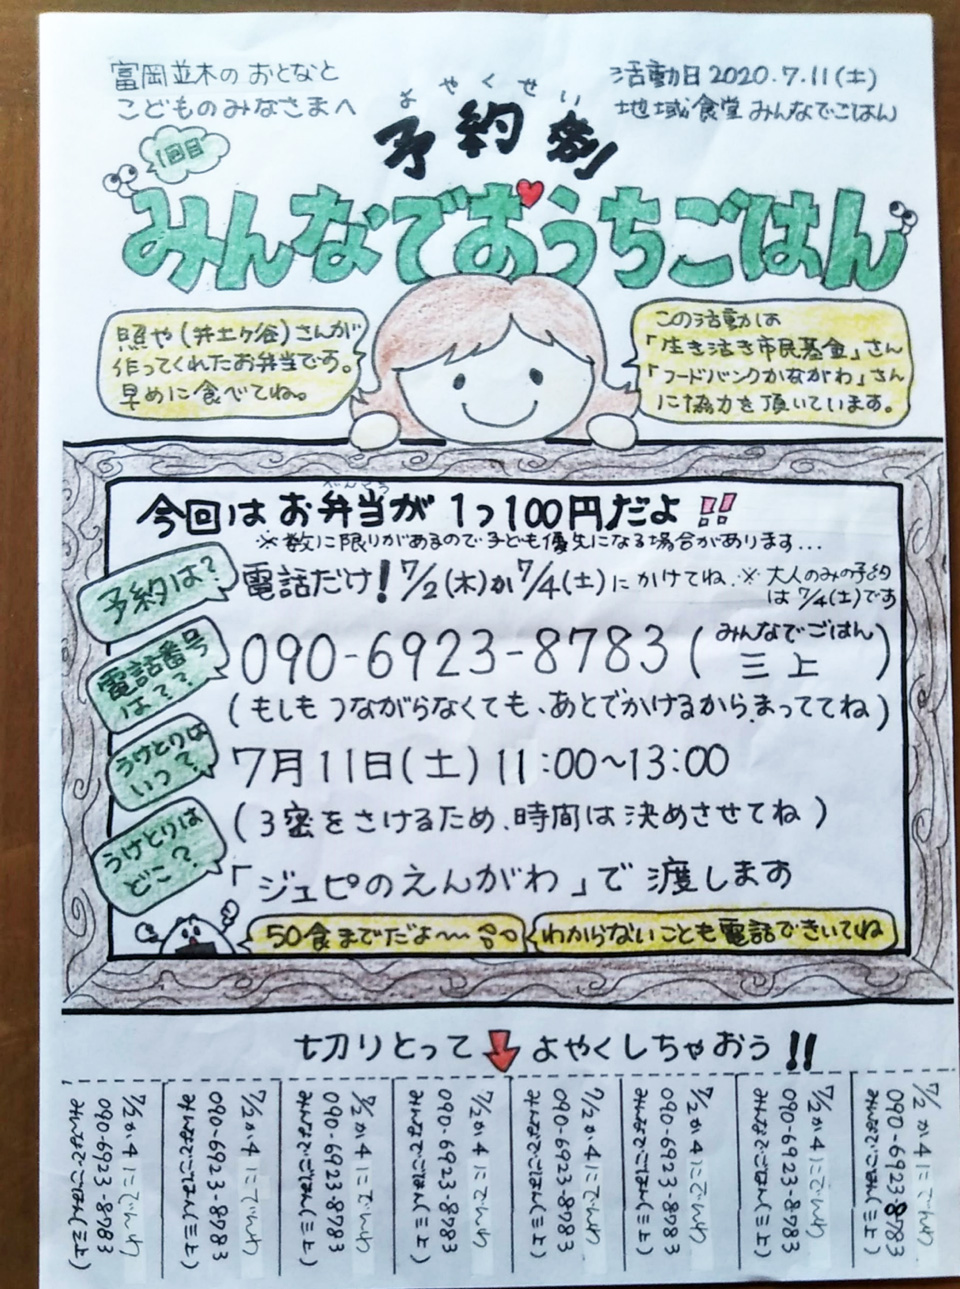 富岡並木の おとなと
こどものみなさまへ
活動日 2020.7.11(土)
地域食堂 みんなでごはん
よやくせい
予約制
1回目
みんなでおうちごはん
照や(井土ヶ谷)さんが
作ってくれたお弁当です。
早めに食べてね。
この活動は
「生き活き市民基金」さん
「フードバンクかながわ」さん
に協力を頂いています。
べんとう
今回は お弁当が 1つ100円だよ!!
※数に限りがあるので子ども優先になる場合があります...
予約は?
電話だけ! 7/2(木)か7/4(土)にかけてね.※大人のみの予約
は7/4(土)です
電話番号
は??
090-6923-8783(みんなでごはん
三上)
(もしもつながらなくても、あとでかけるから、まっててね)
うけとりは
いつ?
7月11日(土) 11:00~13:00
(3密をさけるため、時間は決めさせてね)
うけとりは
どこ?
「ジュピのえんがわ」で渡します
50食までだよ~~
わからないことも電話できいてね
切りとって よやくしちゃおう!!
7/2か4にでんわ
090-6923-8783
みんなでごはん(三上)
7/2か4にでんわ
090-6923-8783
みんなでごはん(三上)
7/2か4にでんわ
090-6923-8783
みんなでごはん(三上)
7/2か4にでんわ
090-6923-8783
みんなでごはん(三上)
7/2か4にでんわ
090-6923-8783
みんなでごはん(三上)
7/2か4にでんわ
090-6923-8783
みんなでごはん(三上)
7/2か4にでんわ
090-6923-8783
みんなでごはん(三上)
7/2か4にでんわ
090-6923-8783
みんなでごはん(三上)